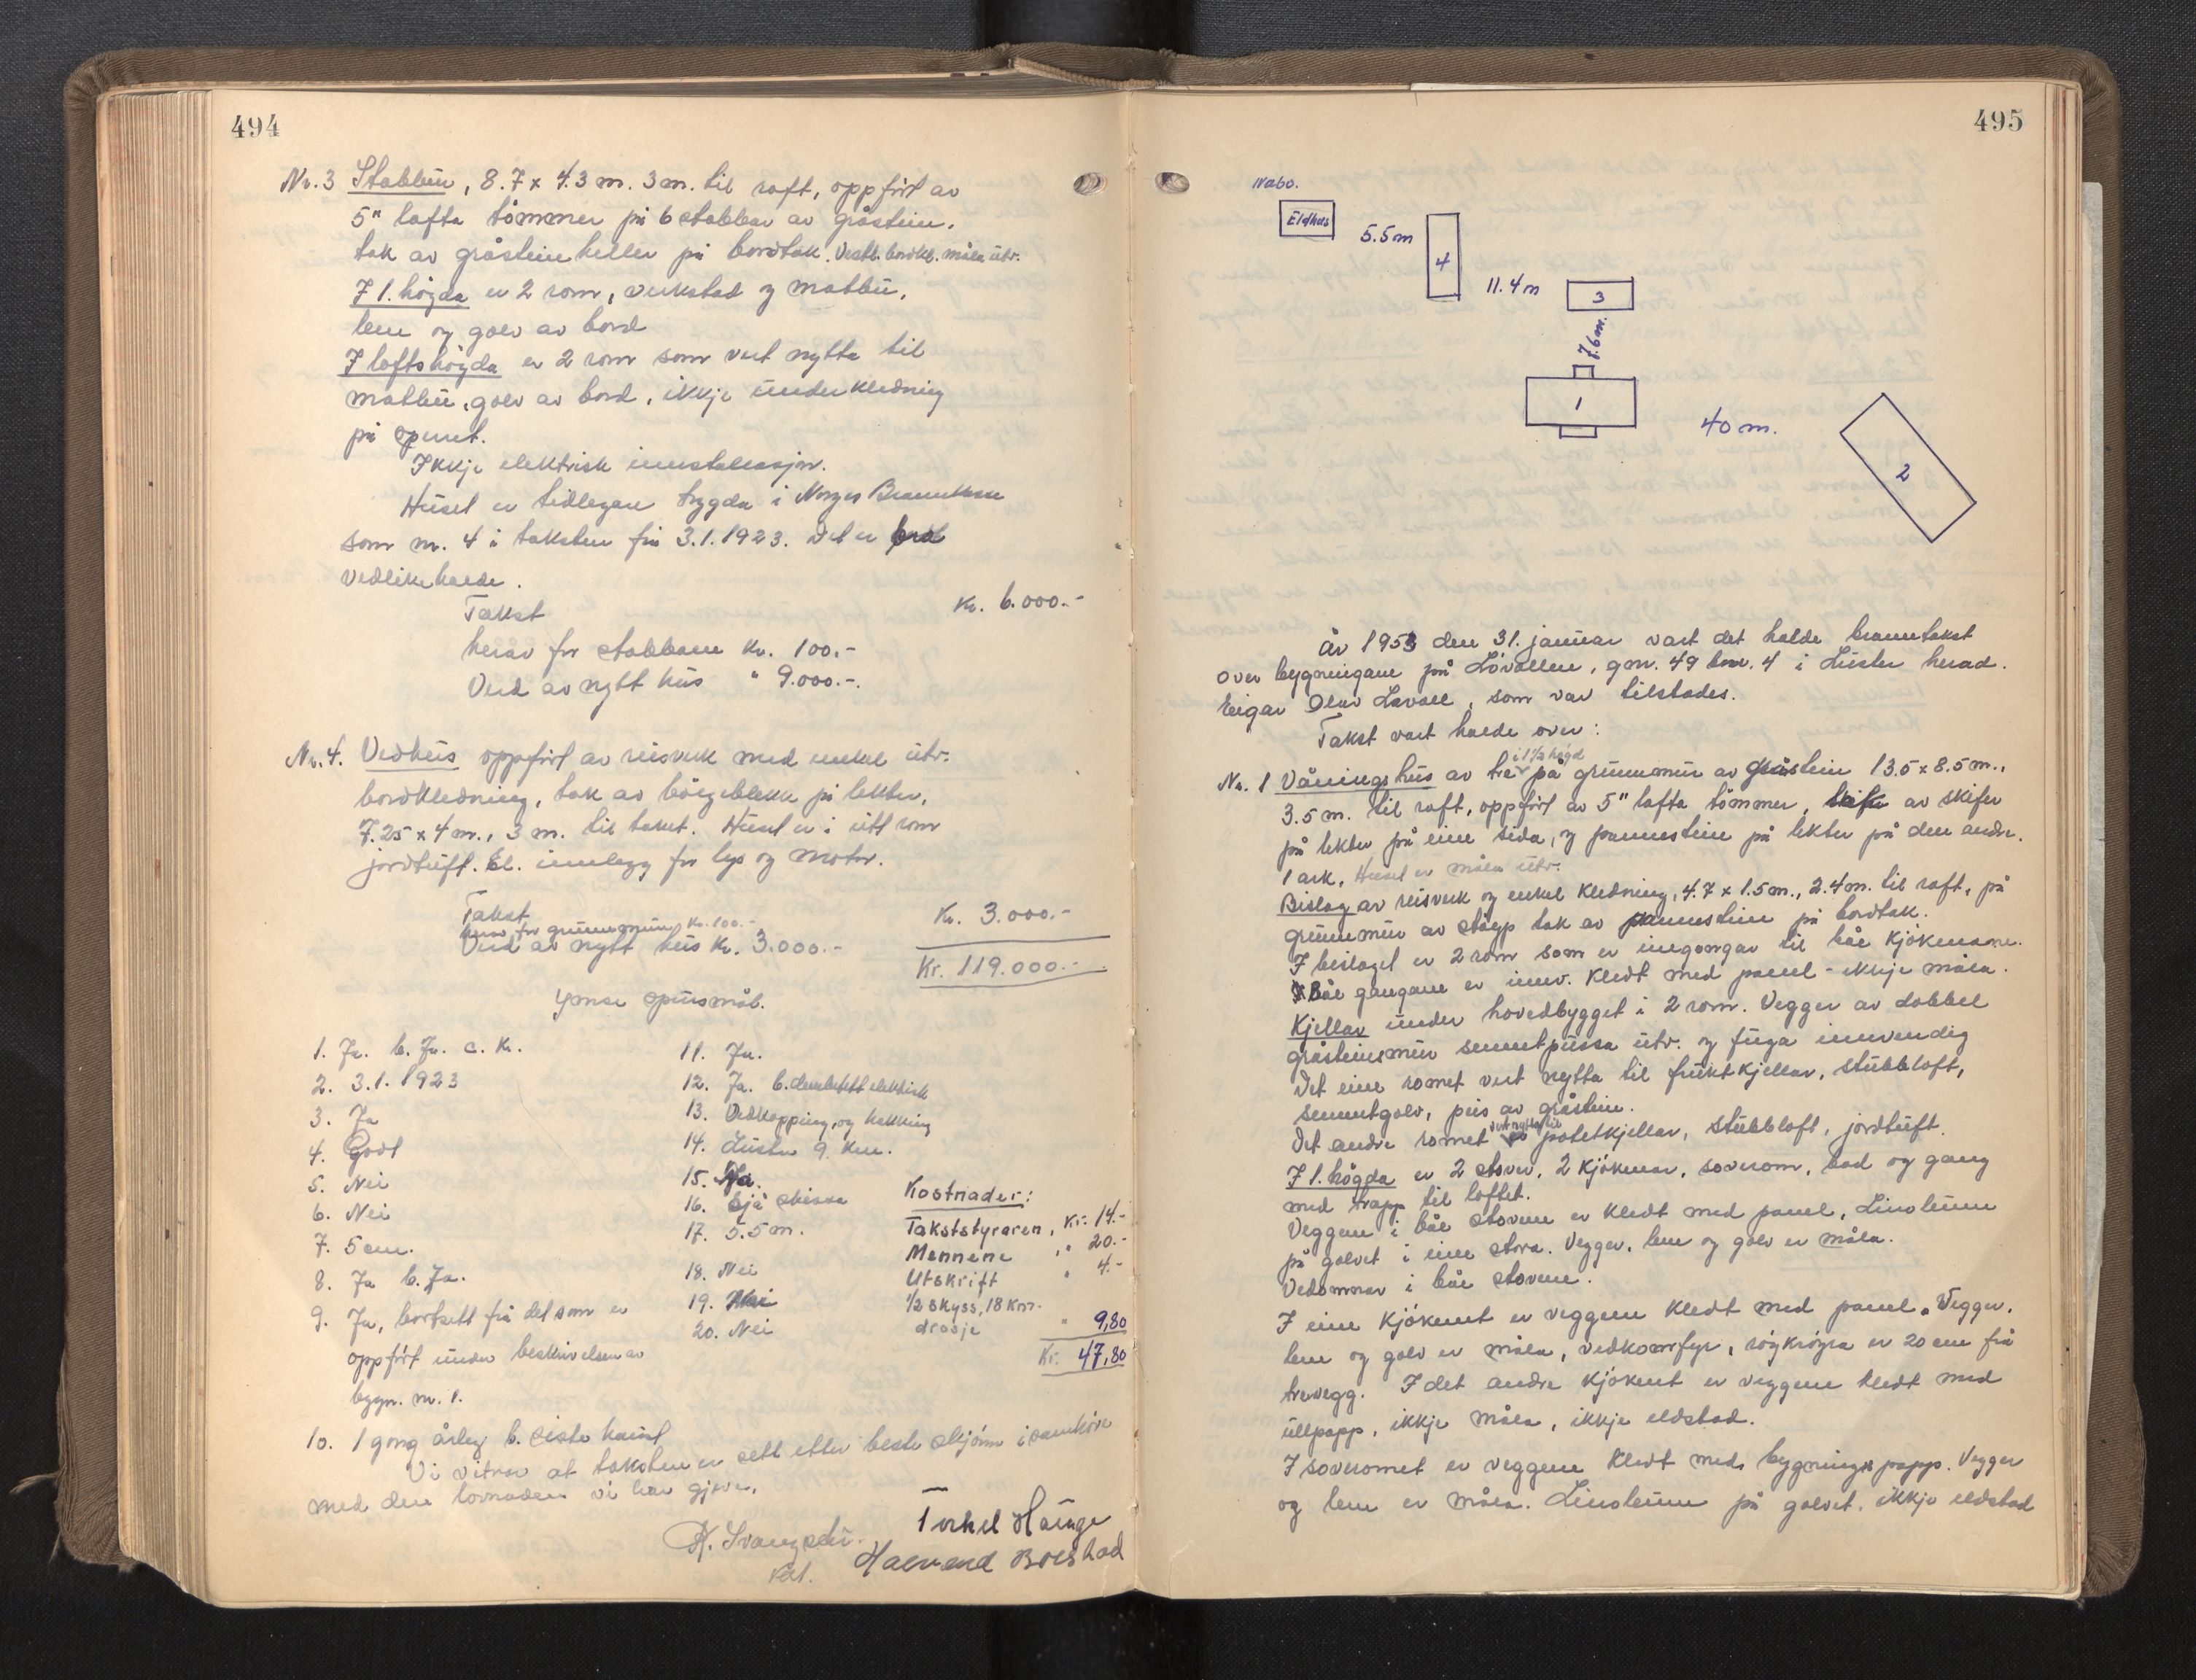 494
Nr. 3 Stabbur, 8.7 x 4.3 m. 3 m. til raft, oppført av
5" lafta tømmer på 6 stabbar av gråstein.
tak av gråsteinheller på bordtak. Vestl. bordkl. måla utv.
I 1. høgda er 2 rom, verkstad og matbu,
lem og golv av bord
I loftshøgda er 2 rom som vert nytta til
matbu, golv av bord, ikkje underkledning
på sperret.
Ikkje elektrisk innstallasjon.
Huset er tidlegare trygda i Norges Brannkasse
som nr. 4 i taksten frå 3.1.1923. Det er
vedlikehalde.
Takst Kr. 6.000.-
herav for stabbane Kr. 100.-
Verd av nytt hus " 9.000.-.
Nr. 4. Vedhus oppført av reisverk med enkel utv.
bordkledning, tak av bølgeblekk på lekter,
7.25 x 4 m., 3 m. til taket. Huset er i eitt rom
jordtuft. El. innlegg for lys og motor.
Takst Kr. 3.000.-
herav for grunnmuren Kr. 100.-
Verd av nytt hus Kr. 3.000.-
Kr. 119.000.-
Ymse spursmål.
1. Ja. b. Ja. c. Kr.
2. 3.1.1923
3. Ja
4. Godt
5. Nei
6. Nei
7. 5 cm.
8. Ja b. Ja.
9. Ja, bortsett frå det som er
oppført under beskrivelsen av
bygn. nr. 1.
10. 1 gong årleg b. siste haust
11. Ja.
12. Ja. b. elektrisk
13. Vedkapping, og hakking
14. Luster 9 km.
15.
16. Sjå skissa
17. 5.5 m.
18. Nei
19. Nei
20. Nei
Kostnader:
Takststyraren, Kr. 14.-
Mennene " 20.-
Utskrift " 4.-
1/2 skyss, 18 km.
drosje " 9,80
Kr. 47,80
Vi vitnar at taksten er sett etter beste skjønn i samhøve
med den lovnaden vi har gjeve.
Torkel Hauge
Halvard Bolstad
495
Nabo.
Eldhus
5.5 m
4
11.4 m
3
7.6 m.
1
40 m.
2
År 1953 den 31. januar vart det halde branntakst
over bygningane på Løvallen, gnr. 49 bnr. 4 i Luster herad.
Eigar Olav Lavoll, som var tilstades.
Takst vart halde over:
i 1 1/2 høgd
Nr. 1 Våningshus av tre på grunnmur av gråstein 13.5 x 8.5 m.,
3.5 m. til raft, oppført av 5" lafta tømmer, av skifer
på lekter på eine sida, og pannestein på lekter på den andre.
1 ark, Huset er måla utv.
Bislag av reisverk og enkel kledning, 4.7 x 1.5 m., 2.4 m. til raft, på
grunnmur av støyp tak av pannestein på bordtak.
I beslaget er 2 rom som er inngongar til båe kjøkenane.
Båe gangane er innv. kledt med panel - ikkje måla.
Kjellar under hovedbygget i 2 rom. Vegger av dobbel
gråsteinsmur sementpussa utv. og fuga innvendig
Det eine romet vert nytta til fruktkjellar, stubbloft,
sementgolv, peis av gråstein.
Det andre romet vert nytta til potetkjellar, stubbloft, jordtuft.
I 1. høgda er 2 stover, 2 kjøkenar, soverom, bad og gang
med trapp til loftet.
Veggene i båe stovene er kledt med panel, Linoleum
på golvet i eine stova. Vegger, lem og golv er måla.
Vedomnar i båe stovene.
I eine kjøkenet er veggene kledt med panel. Vegger.
lem og golv er måla, vedkomfyr, røykrøyra er 20 cm frå
trevegg. I det andre kjøkenet er veggene kledt med
ullpapp, ikkje måla, ikkje eldstad.
I soveromet er veggene kledt med bygningspapp. Vegger
og lem er måla. Linoleum på golvet. ikkje eldstad